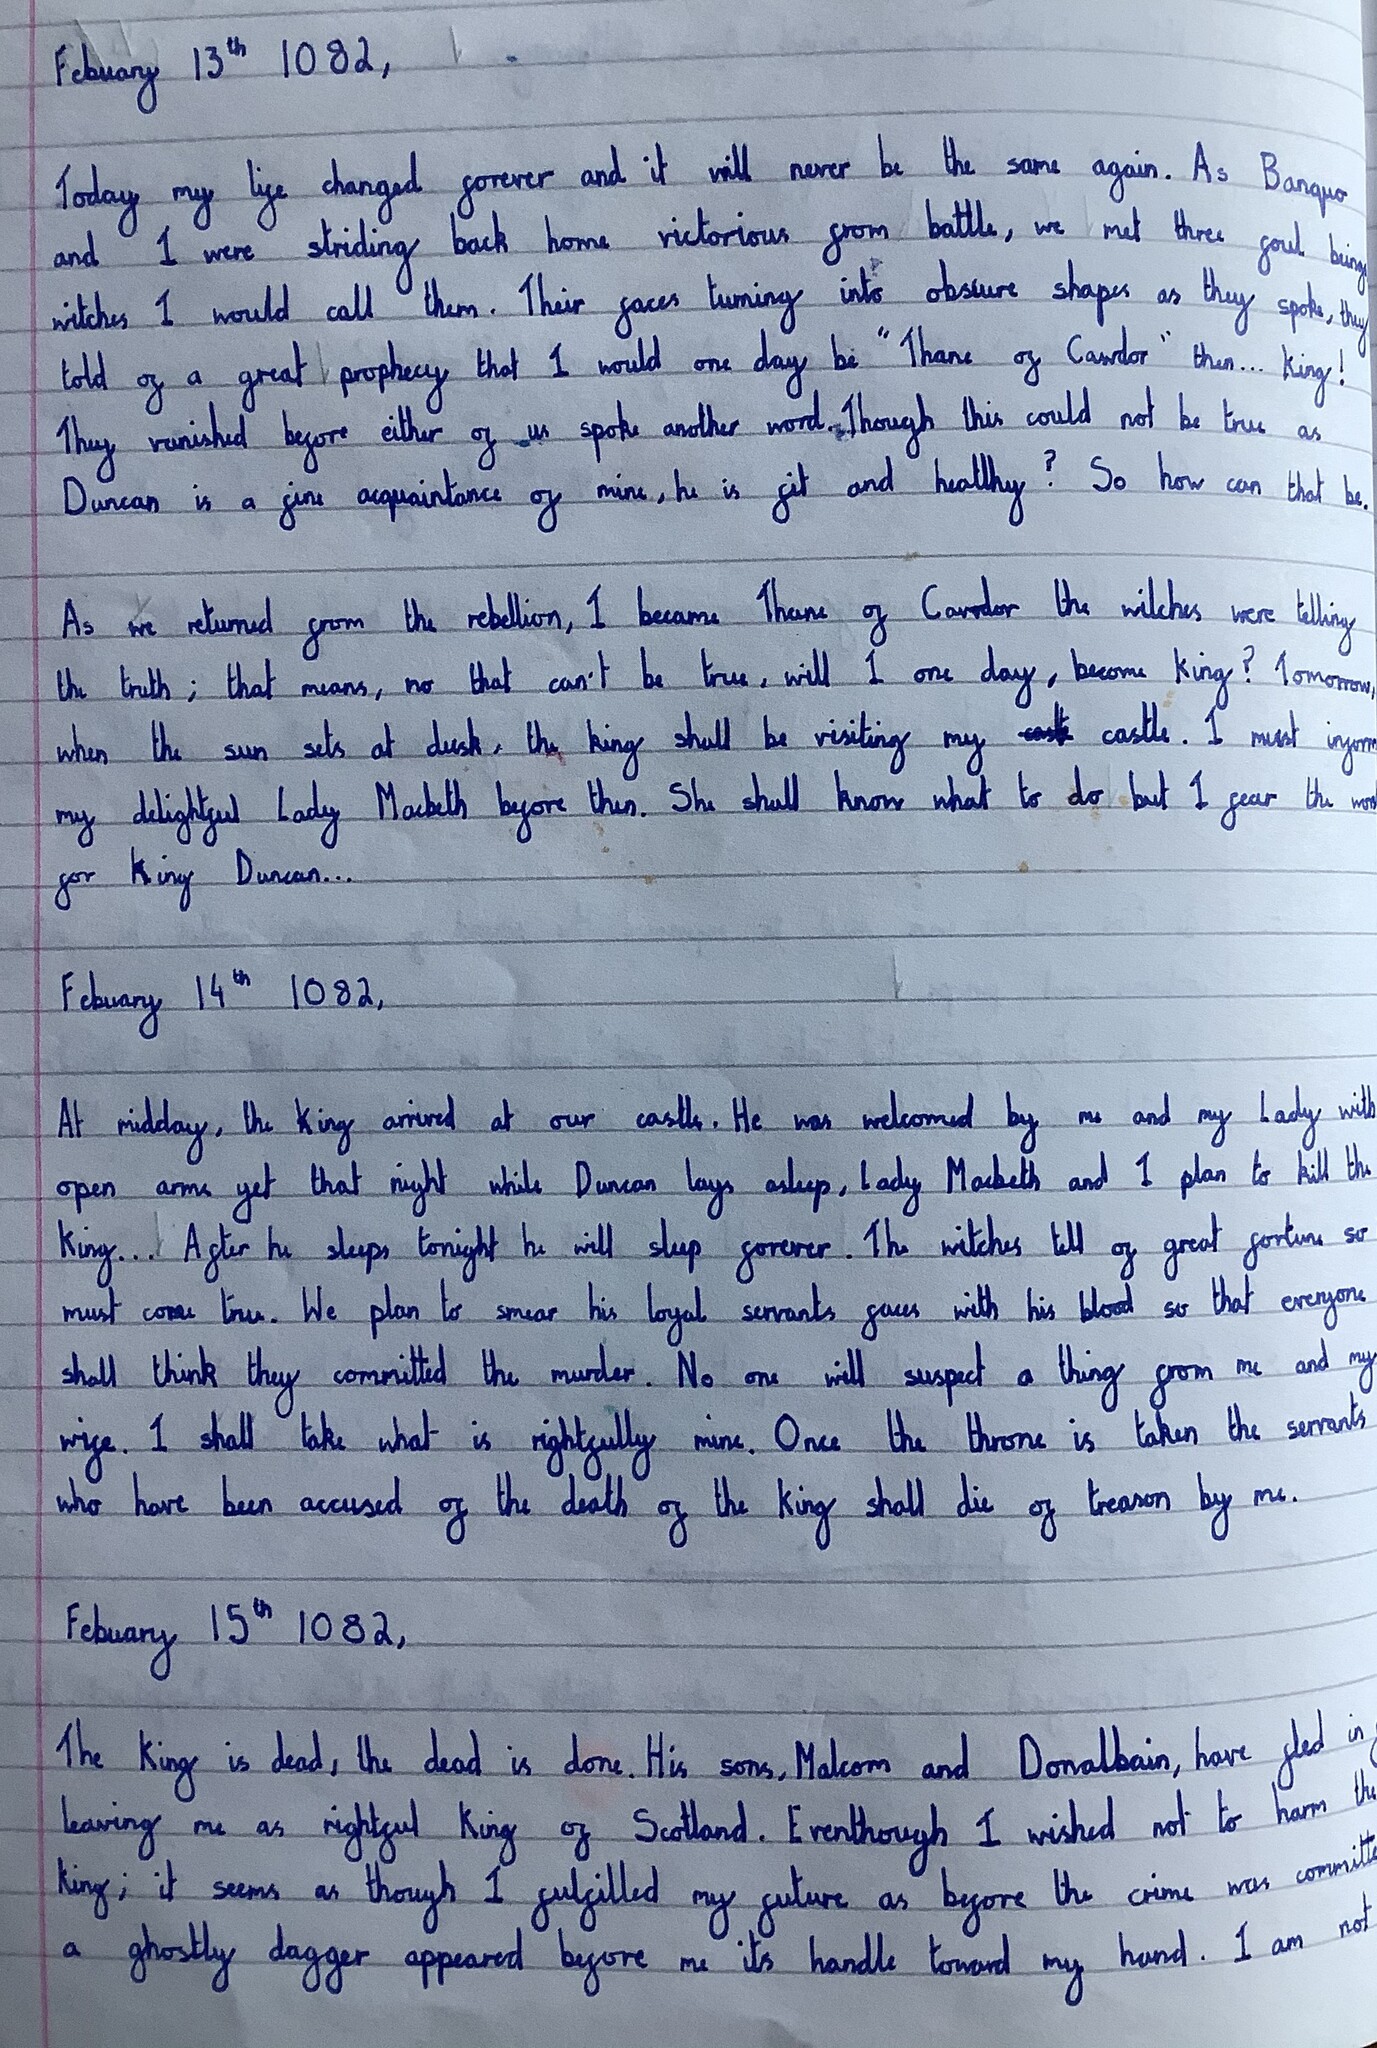 Febuary 13th 1082,
Today my life changed forever and it will never be the same again. As Banquo
and I were striding back home victorious from battle, we met three foul beings
witches I would call them. Their faces turning into obscure shapes as they spoke, they
told of a great prophecy that I would one day be "Thane of Cawdor" then... King!
They vanished before either of us spoke another word. Though this could not be true as
Duncan is a fine acquaintance of mine, he is fit and healthy? So how can that be.
As we returned from the rebellion, I became Thane of Cawdor the witches were telling
the truth; that means, no that can't be true, will I one day, become King? Tomorrow,
when the sun sets at dusk, the king shall be visiting my castle. I must inform
my delightful Lady Macbeth before then. She shall know what to do but I fear the
for King Duncan...
Febuary 14th 1082,
At midday, the King arrived at our castle. He was welcomed by me and my Lady with
open arms yet that night while Duncan lays asleep, Lady Macbeth and I plan to kill the
King... After he sleeps tonight he will sleep forever. The witches tell of great fortune so
must come true. We plan to smear his loyal servants faces with his blood so that everyone
shall think they committed the murder. No one will suspect a thing from me and my
wife. I shall take what is rightfully mine. Once the throne is taken the servants
who have been accused of the death of the King shall die of treason by me.
Febuary 15th 1082,
The King is dead, the dead is done. His sons, Malcom and Donalbain, have fled in
leaving me as rightful King of Scotland. Eventhough I wished not to harm the
King; it seems as though I fulfilled my future as before the crime was committe
a ghostly dagger appeared before me its handle toward my hand. I am not